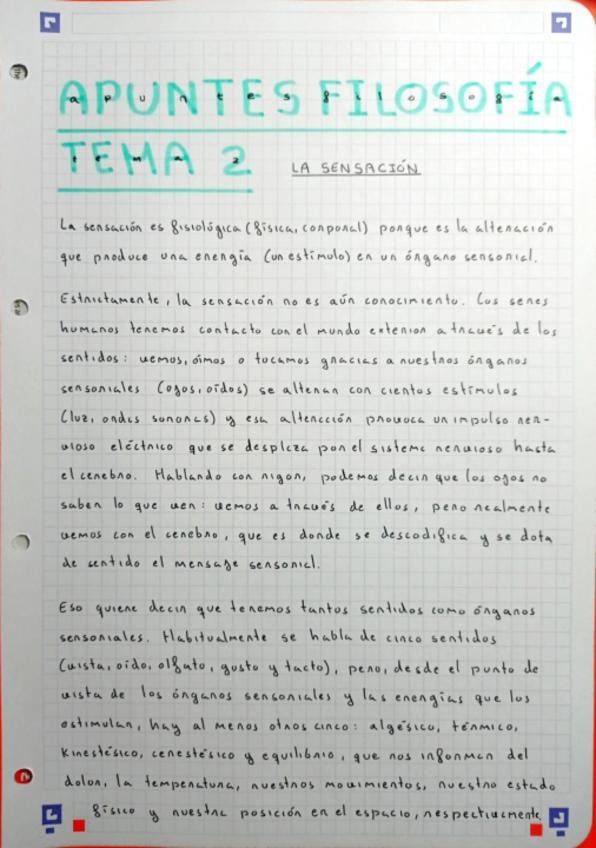 APUNTES FILOSOFÍA
TEMA 2 LA SENSACIÓN
La sensación es fisiológica (física, corporal) porque es la alteración
que produce una energía (un estímulo) en un órgano sensorial.
Estrictamente, la sensación no es aún conocimiento. Los seres
humanos tenemos contacto con el mundo exterior a través de los
sentidos: vemos, oímos o tocamos gracias a nuestros órganos
sensoriales (ojos, oídos) se alteran con ciertos estímulos
(luz, ondas sonoras) y esa alteración provoca un impulso ner-
vioso eléctrico que se desplaza por el sistema nervioso hasta
el cerebro. Hablando con rigor, podemos decir que los ojos no
saben lo que ven: vemos a través de ellos, pero realmente
vemos con el cerebro, que es donde se descodifica y se dota
de sentido el mensaje sensorial.
Eso quiere decir que tenemos tantos sentidos como órganos
sensoriales. Habitualmente se habla de cinco sentidos
(vista, oído, olfato, gusto y tacto), pero, desde el punto de
vista de los órganos sensoriales y las energías que los
estimulan, hay al menos otros cinco: algésico, térmico,
kinestésico, cenestésico y equilibrio, que nos informan del
dolor, la temperatura, nuestros movimientos, nuestro estado
físico y nuestra posición en el espacio, respectivamente.